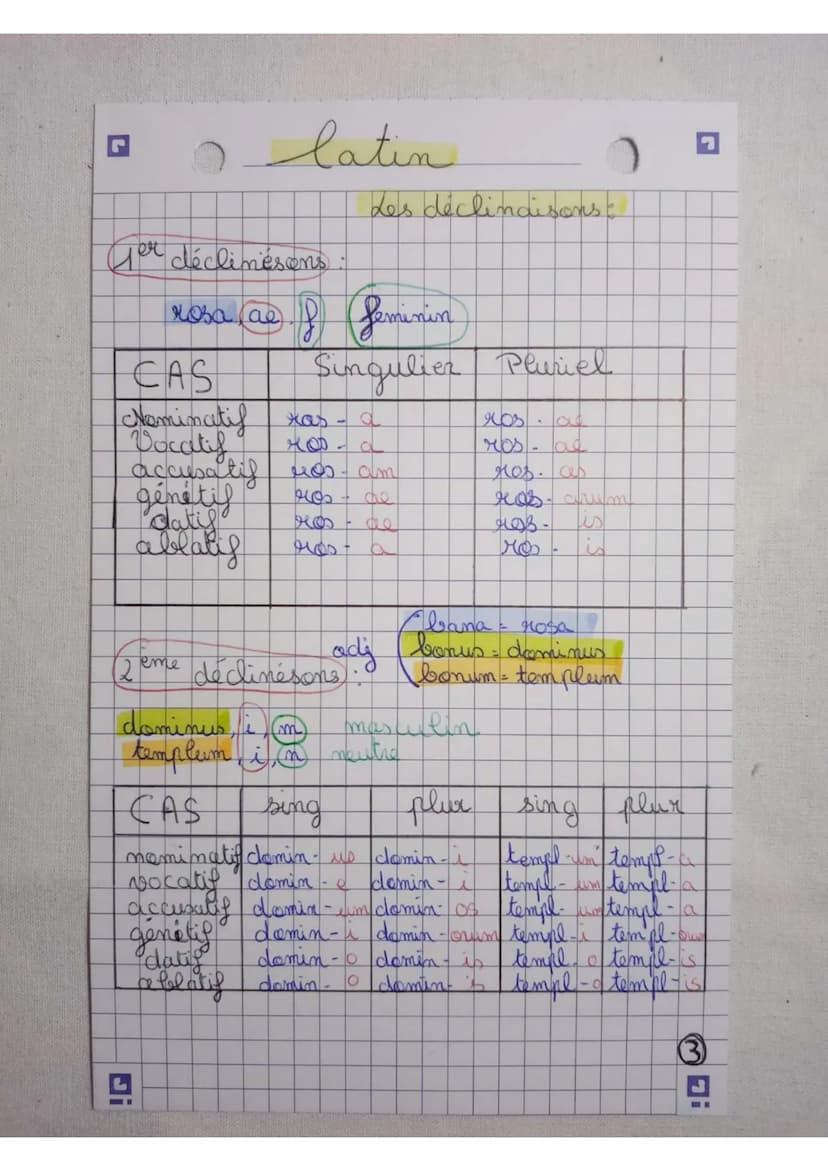 latin
Les déclinaisons :
1er déclinésons :
rosa, ae. f feminin
CAS Singulier Pluriel
Nominatif ros - a ros - ae
Vocatif ros - a ros - ae
accusatif ros - am ros - as
génétif ros - ae ros - arum
datif ros - ae ros - is
ablatif ros - a ros - is
bana = rosa
adj bonus = dominus
2ème déclinésons : bonum = templum
dominus, i, m masculin
templum, i, n neutre
CAS sing plur sing plur
nominatif domin - us domin - i templ - um templ - a
vocatif domin - e domin - i templ - um templ - a
accusatif domin - um domin - os templ - um templ - a
génétif domin - i domin - orum templ - i templ - orum
datif domin - o domin - is templ - o templ - is
ablatif domin - o domin - is templ - o templ - is
3